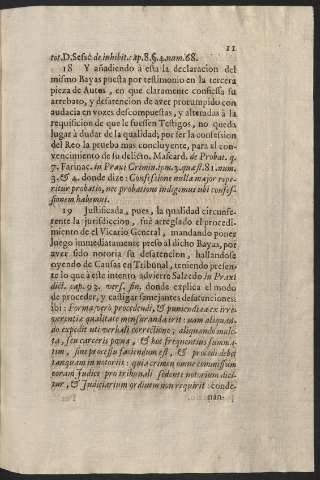 11
tot. D. Sessè de inhibit. cap. 8. §. 4. num. 68.
18 Y añadiendo à esta la declaracion del
mismo Bayas puesta por testimonio en la tercera
pieza de Autos, en que claramente confiessa su
arrebato, y desatencion de aver prorumpido con
audacia en vozes descompuestas, y alteradas à la
requisicion de que le fuessen Testigos, no queda
lugar à dudar de la qualidad, por ser la confession
del Reo la prueba mas concluyente, para el con-
vencimiento de su delicto. Mascard. de Probat. q.
7. Farinac. in Praxi Crimin. tom. 3. quæst. 81. num.
3. & 4. donde dize: Confessione nulla major repe-
ritur probatio, nec probatione indigemus ubi confes-
sionem habemus.
19 Justificada, pues, la qualidad circunfe-
rente la jurisdiccion, fuè arreglado el procedi-
miento de el Vicario General, mandando poner
luego immediatamente preso al dicho Bayas, por
aver sido notoria su desatencion, hallandose
oyendo de Causas en Tribunal, teniendo presen-
te lo que à este intento advierte Salzedo in Praxi
dict. cap. 93. vers. fin. donde explica el modo
de proceder, y castigar semejantes desatenciones:
ibi: Forma verò procedendi, & puniendi ea ex irre-
verentiæ qualitate mensuranda erit: nam aliquan-
do expedit uti verbali correctione; aliquando mulc-
ta, seu carceris pœna, & hoc frequentius summa-
tim, sine processu faciendum est, & procedi debet
tanquam in notoriis: quia crimen omne commissum
coram Judice pro tribunali sedente notorium dici-
tur, & Judiciarium ordinem non requirit: conde-
nan-